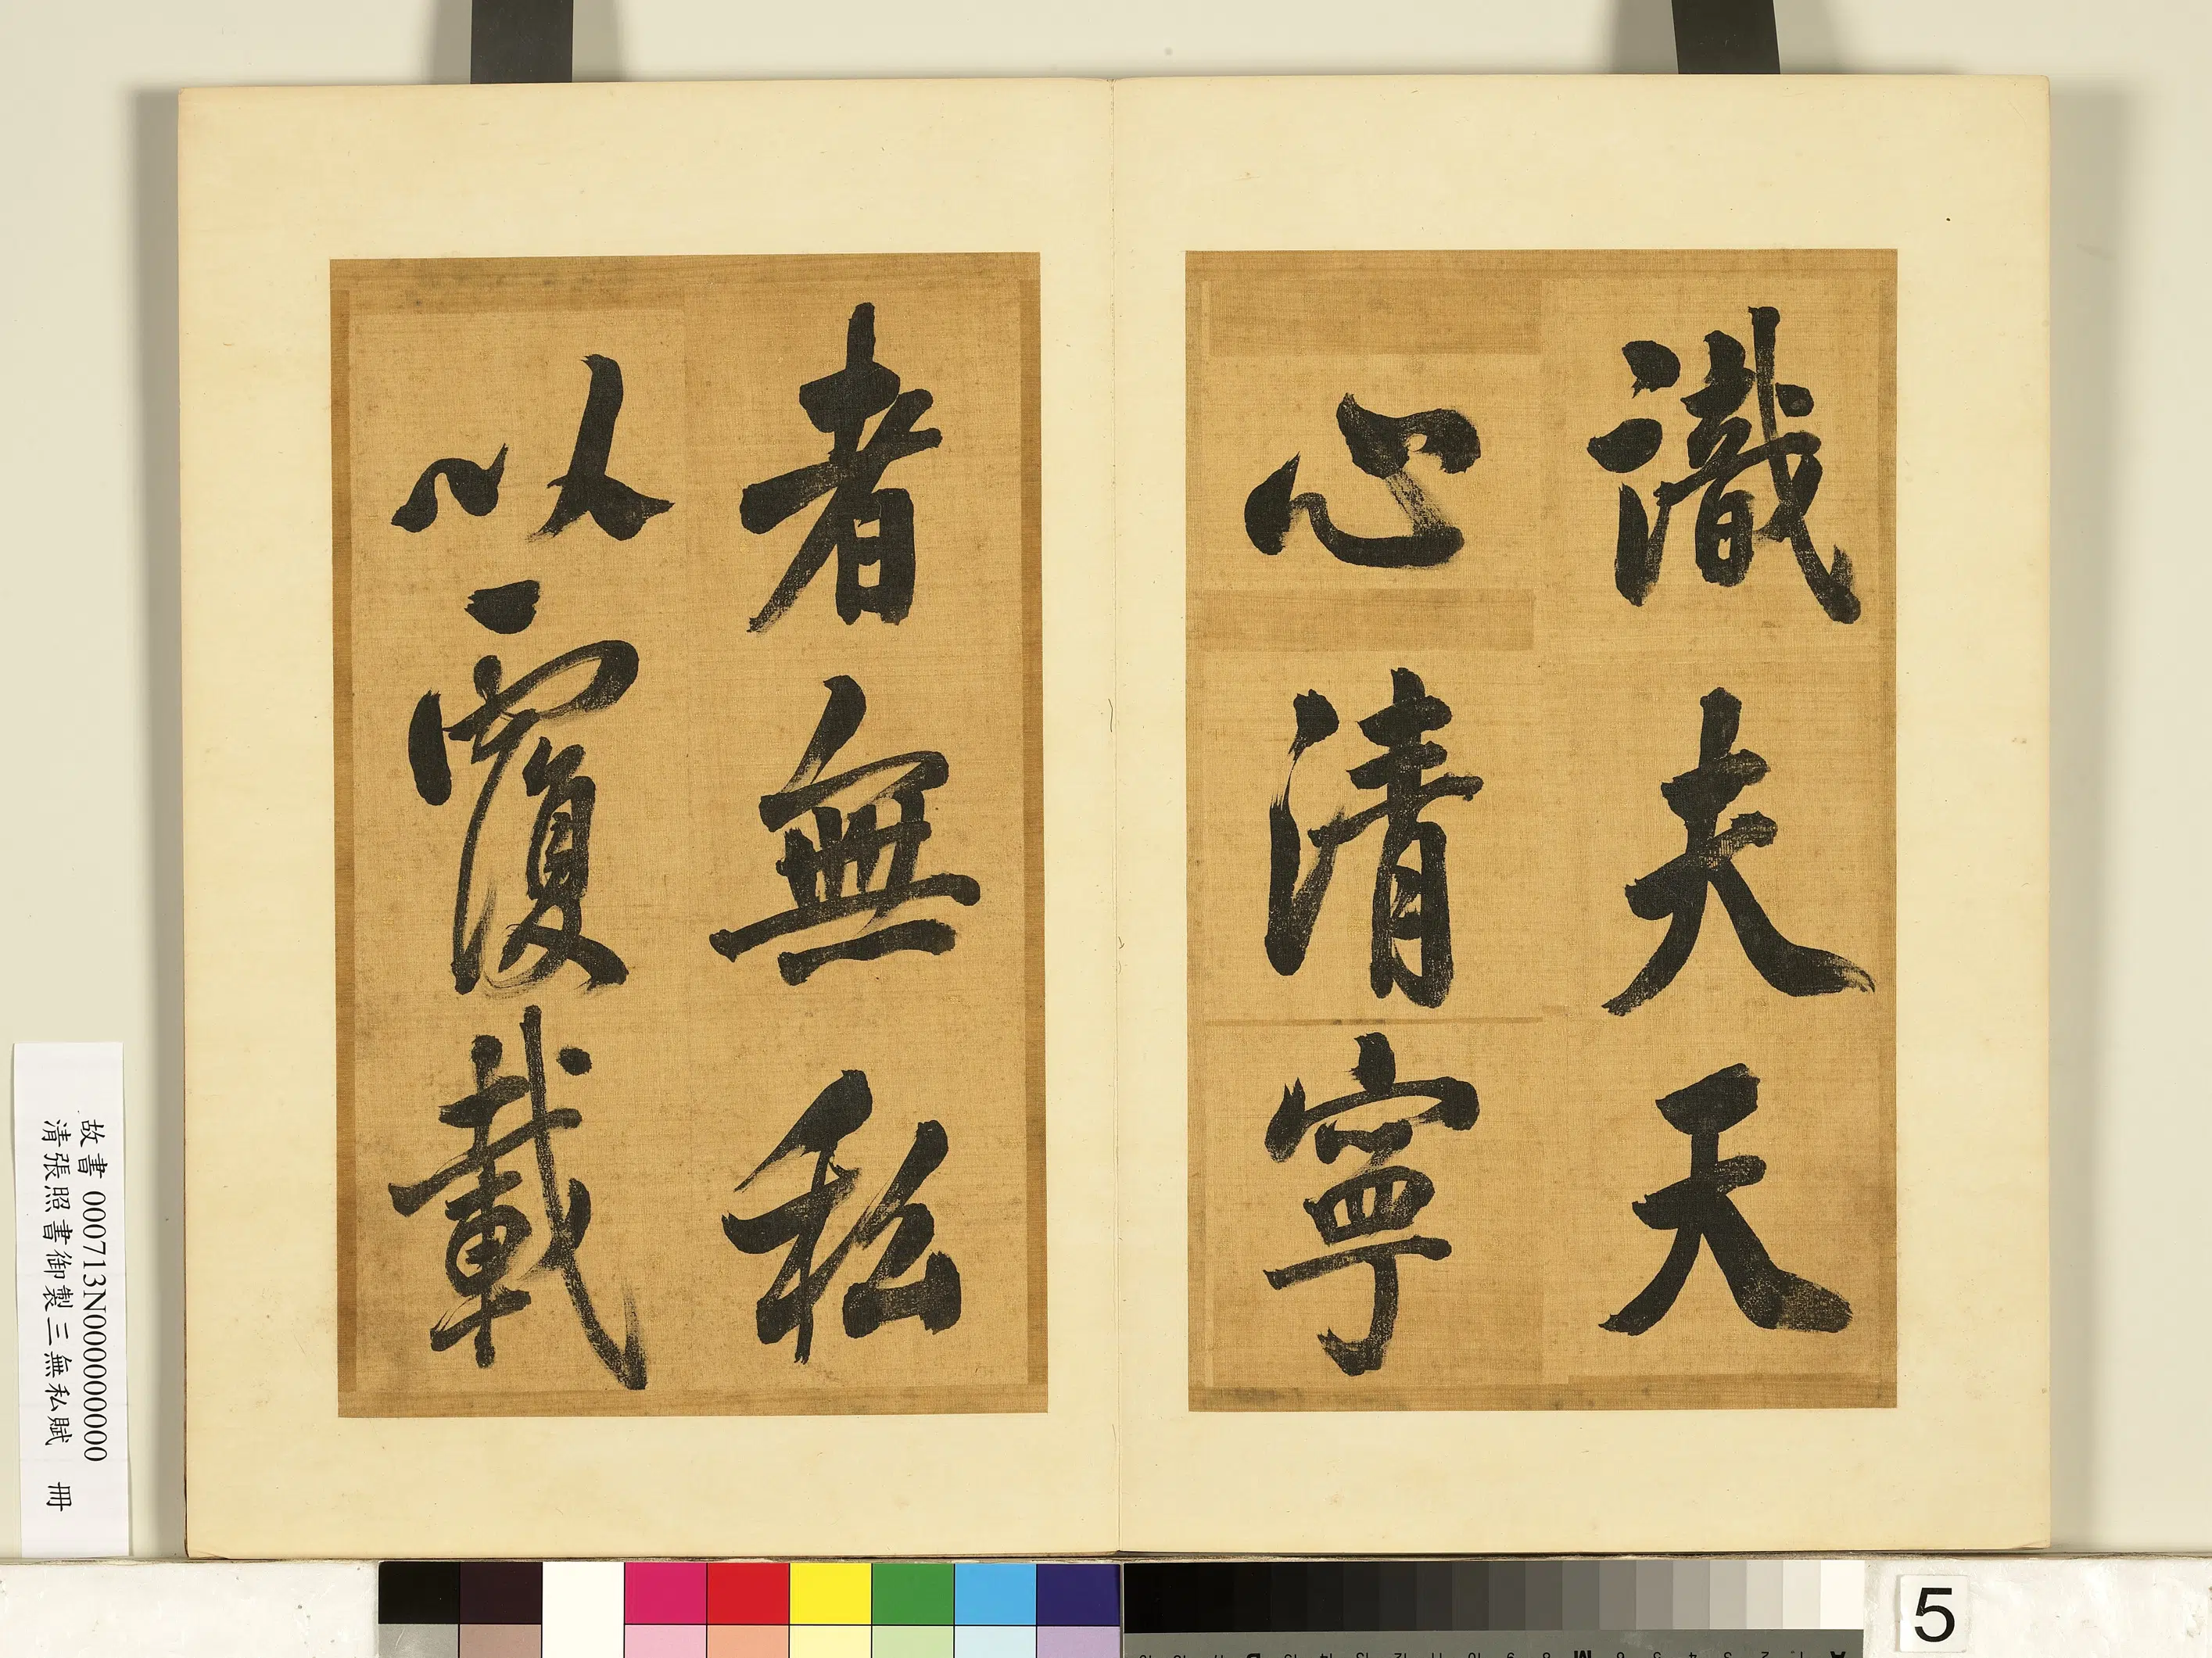 識夫天
心清寧
者無私
以覆載
故書 000713N000000000
清張照書御製三無私賦 冊
5